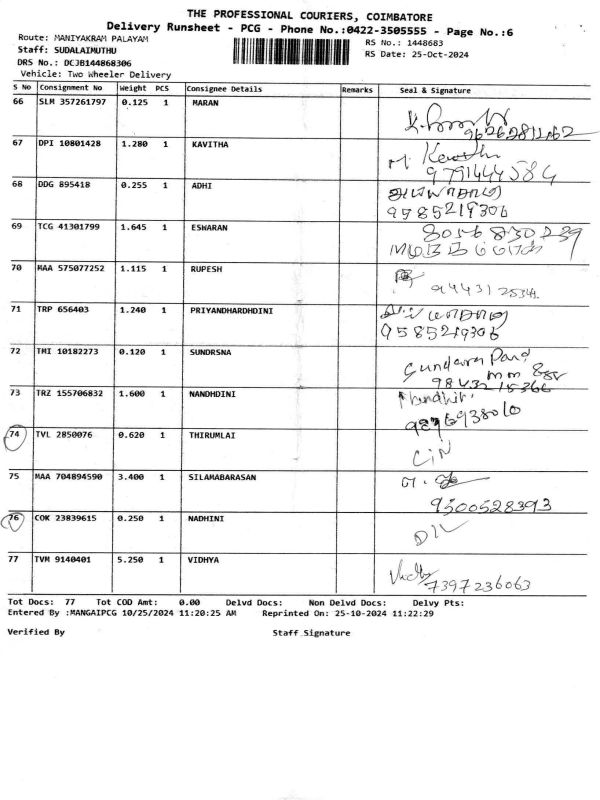 THE PROFESSIONAL COURIERS, COIMBATORE
Delivery Runsheet - PCG - Phone No.:0422-3505555 - Page No.:6
Route: MANIYAKRAM PALAYAM
RS No.: 1448683
Staff: SUDALAIMUTHU
RS Date: 25-Oct-2024
DRS No.: DCJB144868306
Vehicle: Two Wheeler Delivery
S No Consignment No Weight PCS Consignee Details Remarks Seal & Signature
66 SLM 357261797 0.125 1 MARAN
67 DPI 10801428 1.280 1 KAVITHA
9791444584
68 DDG 895418 0.255 1 ADHI
9585219306
69 TCG 41301799 1.645 1 ESWARAN
8056830239
70 MAA 575077252 1.115 1 RUPESH
71 TRP 656403 1.240 1 PRIYANDHARDHDINI
9585219306
72 TMI 10182273 0.120 1 SUNDRSNA
9843215366
73 TRZ 155706832 1.600 1 NANDHDINI
74 TVL 2850076 0.620 1 THIRUMLAI
75 MAA 704894590 3.400 1 SILAMABARASAN
9500528393
76 COK 23839615 0.250 1 NADHINI
77 TVM 9140401 5.250 1 VIDHYA
7397236063
Tot Docs: 77 Tot COD Amt: 0.00 Delvd Docs: Non Delvd Docs: Delvy Pts:
Entered By :MANGAIPCG 10/25/2024 11:20:25 AM Reprinted On: 25-10-2024 11:22:29
Verified By Staff Signature